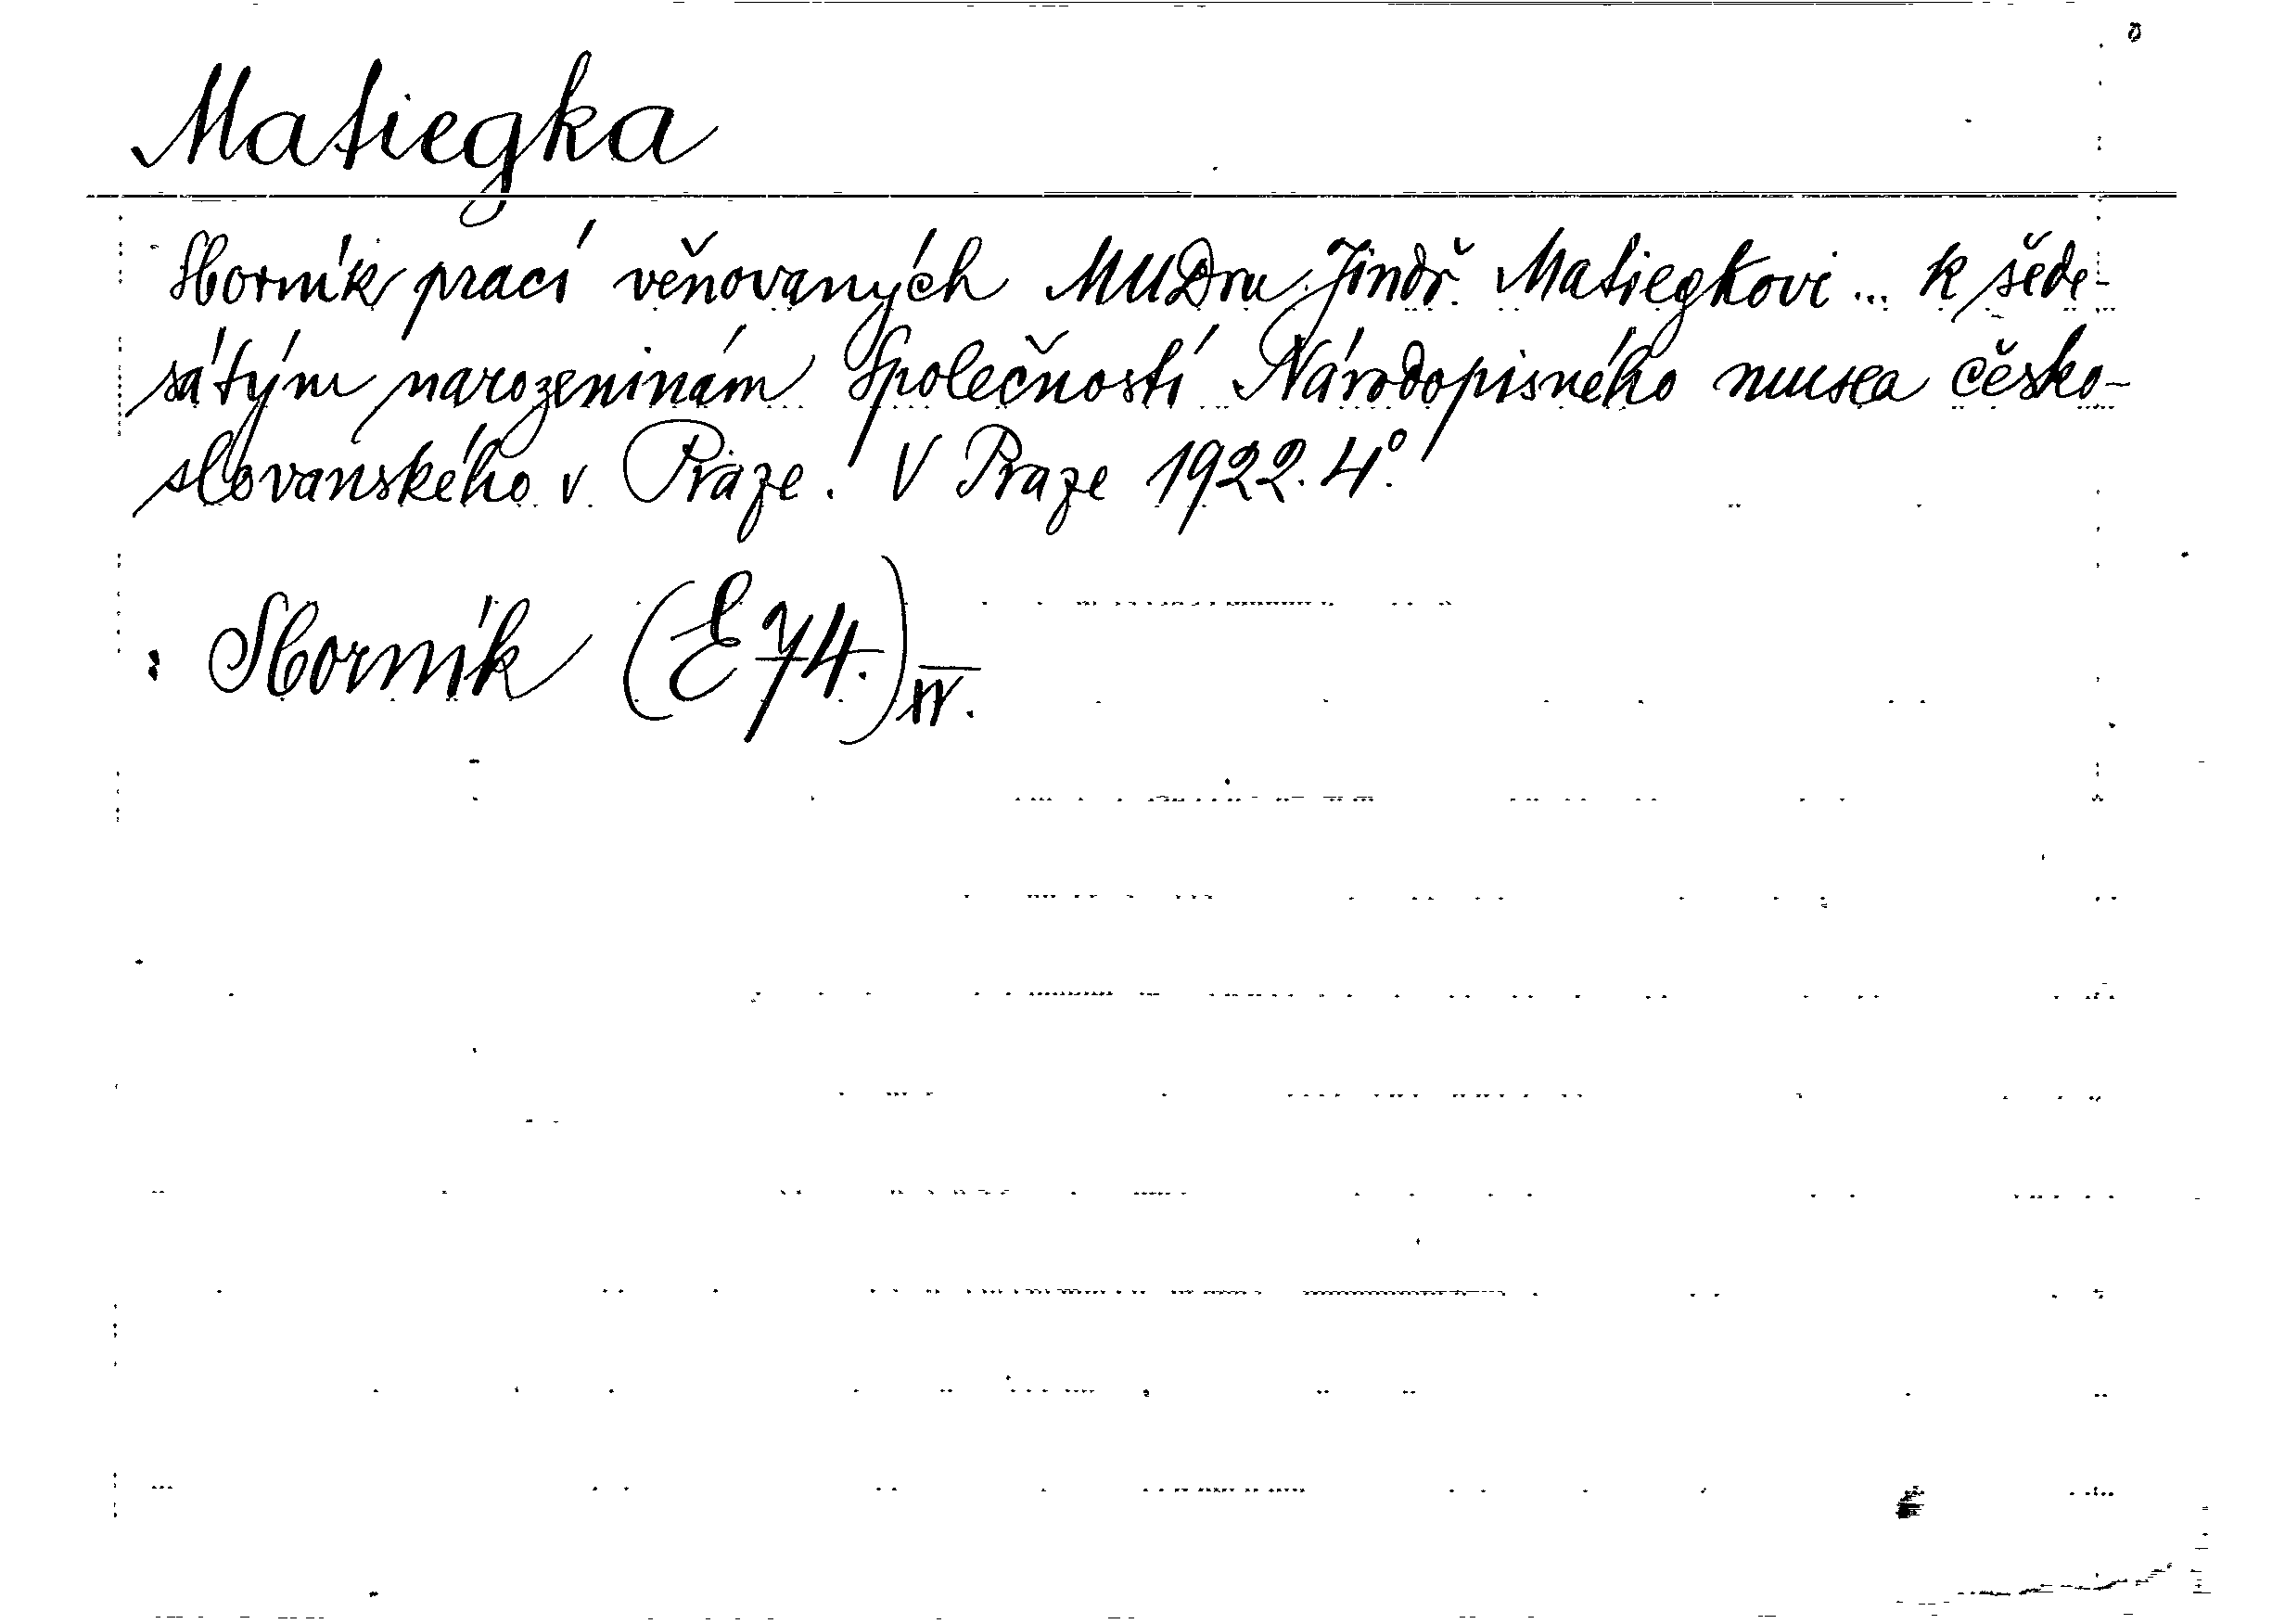 Matiegka
Sborník prací věňovaných MUDru. Jindř. Matiegkovi ... k šede-
sátým narozeninám Společností Národopisného musea česko-
slovanského v Praze. V Praze 1922. 4°.
: Sborník (E 74.) IV.